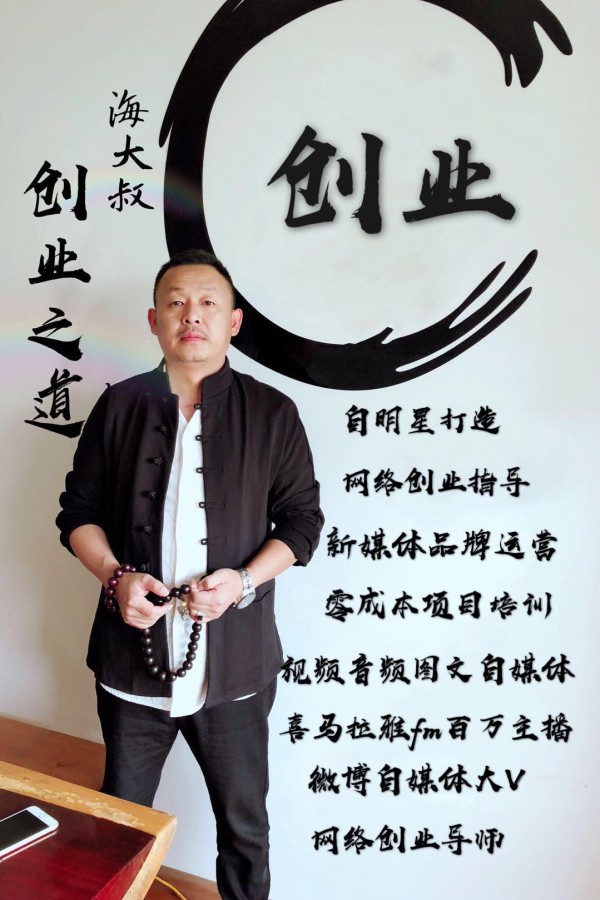 海大叔
创业之道
创业
自明星打造
网络创业指导
新媒体品牌运营
零成本项目培训
视频音频图文自媒体
喜马拉雅fm百万主播
微博自媒体大V
网络创业导师